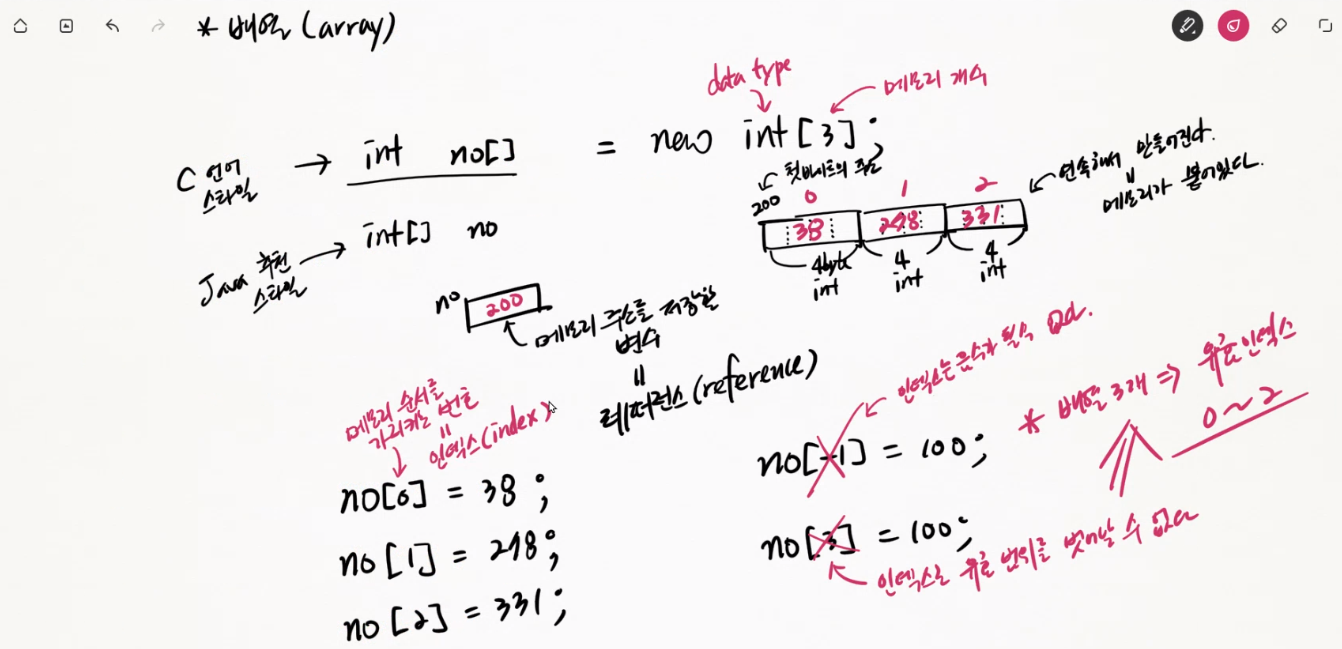 * 배열 (array)
data type
메모리 개수
C 언어 스타일 → int no[] = new int[3];
Java 추천 스타일 → int[] no
200 ← 첫 바이트의 주소
0 1 2
38 298 331
4byte int
4 int
4 int
← 연속해서 만들어진다.
=
메모리가 붙어있다.
no 200
메모리 주소를 저장할 변수
=
레퍼런스(reference)
메모리 순서를 가리키는 번호
=
인덱스(index)
no[0] = 38;
no[1] = 298;
no[2] = 331;
인덱스는 음수가 될 수 없다.
no[-1] = 100;
no[3] = 100;
인덱스는 유효 범위를 벗어날 수 없다
* 배열 3개 => 유효인덱스
0 ~ 2